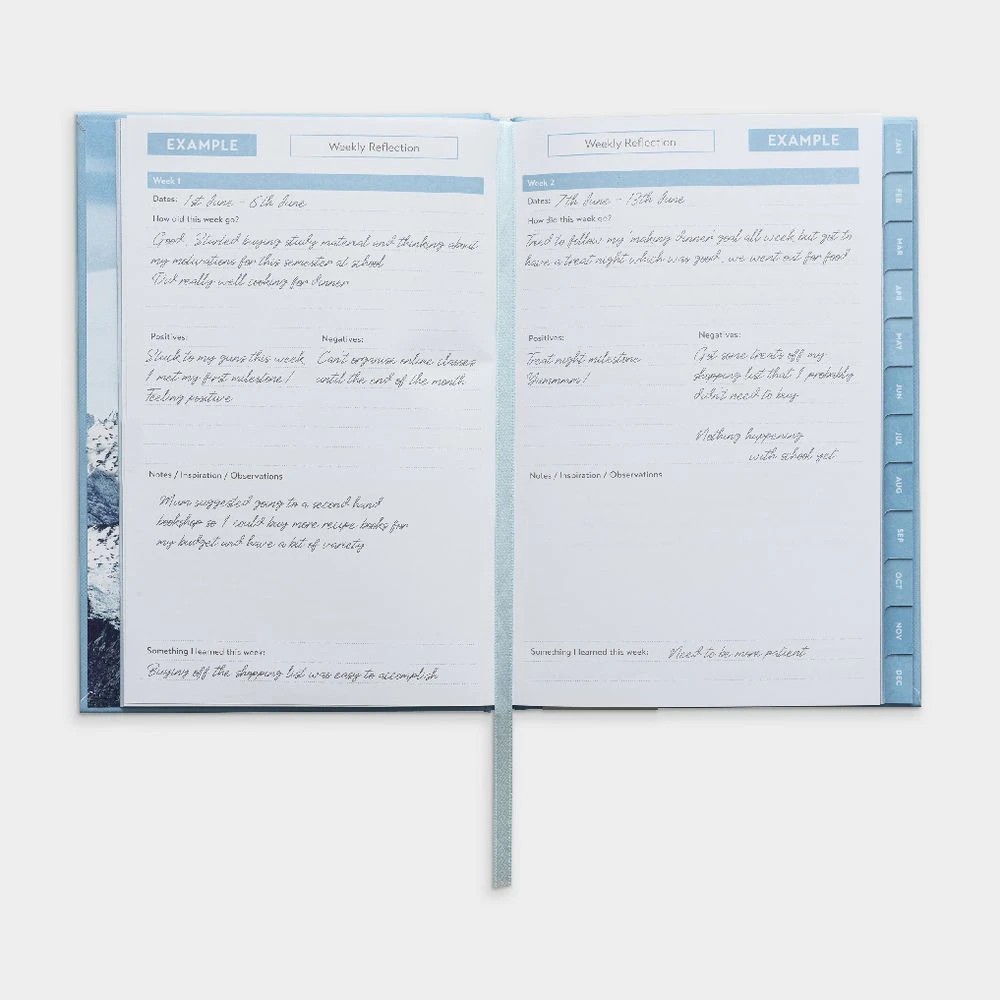 EXAMPLE
Weekly Reflection
Week 1
Dates: 1st June - 6th June
How did this week go?
Good. Started buying study material and thinking about
my motivations for this semester at school
Did really well cooking for dinner
Positives:
Stuck to my guns this week
I met my first milestone!
Feeling positive
Negatives:
Can't organise online classes
until the end of the month
Notes / Inspiration / Observations
Mum suggested going to a second hand
bookshop so I could buy more recipe books for
my budget and have a bit of variety
Something I learned this week:
Buying off the shopping list was easy to accomplish
Weekly Reflection
EXAMPLE
Week 2
Dates: 7th June - 13th June
How did this week go?
Tried to follow my 'making dinner' goal all week but got to
have a treat night which was good, we went out for food
Positives:
Treat night milestone
Yummmm!
Negatives:
Got some treats off my
shopping list that I probably
didn't need to buy
Nothing happening
with school yet
Notes / Inspiration / Observations
Something I learned this week: Need to be more patient
JAN
FEB
MAR
APR
MAY
JUN
JUL
AUG
SEP
OCT
NOV
DEC